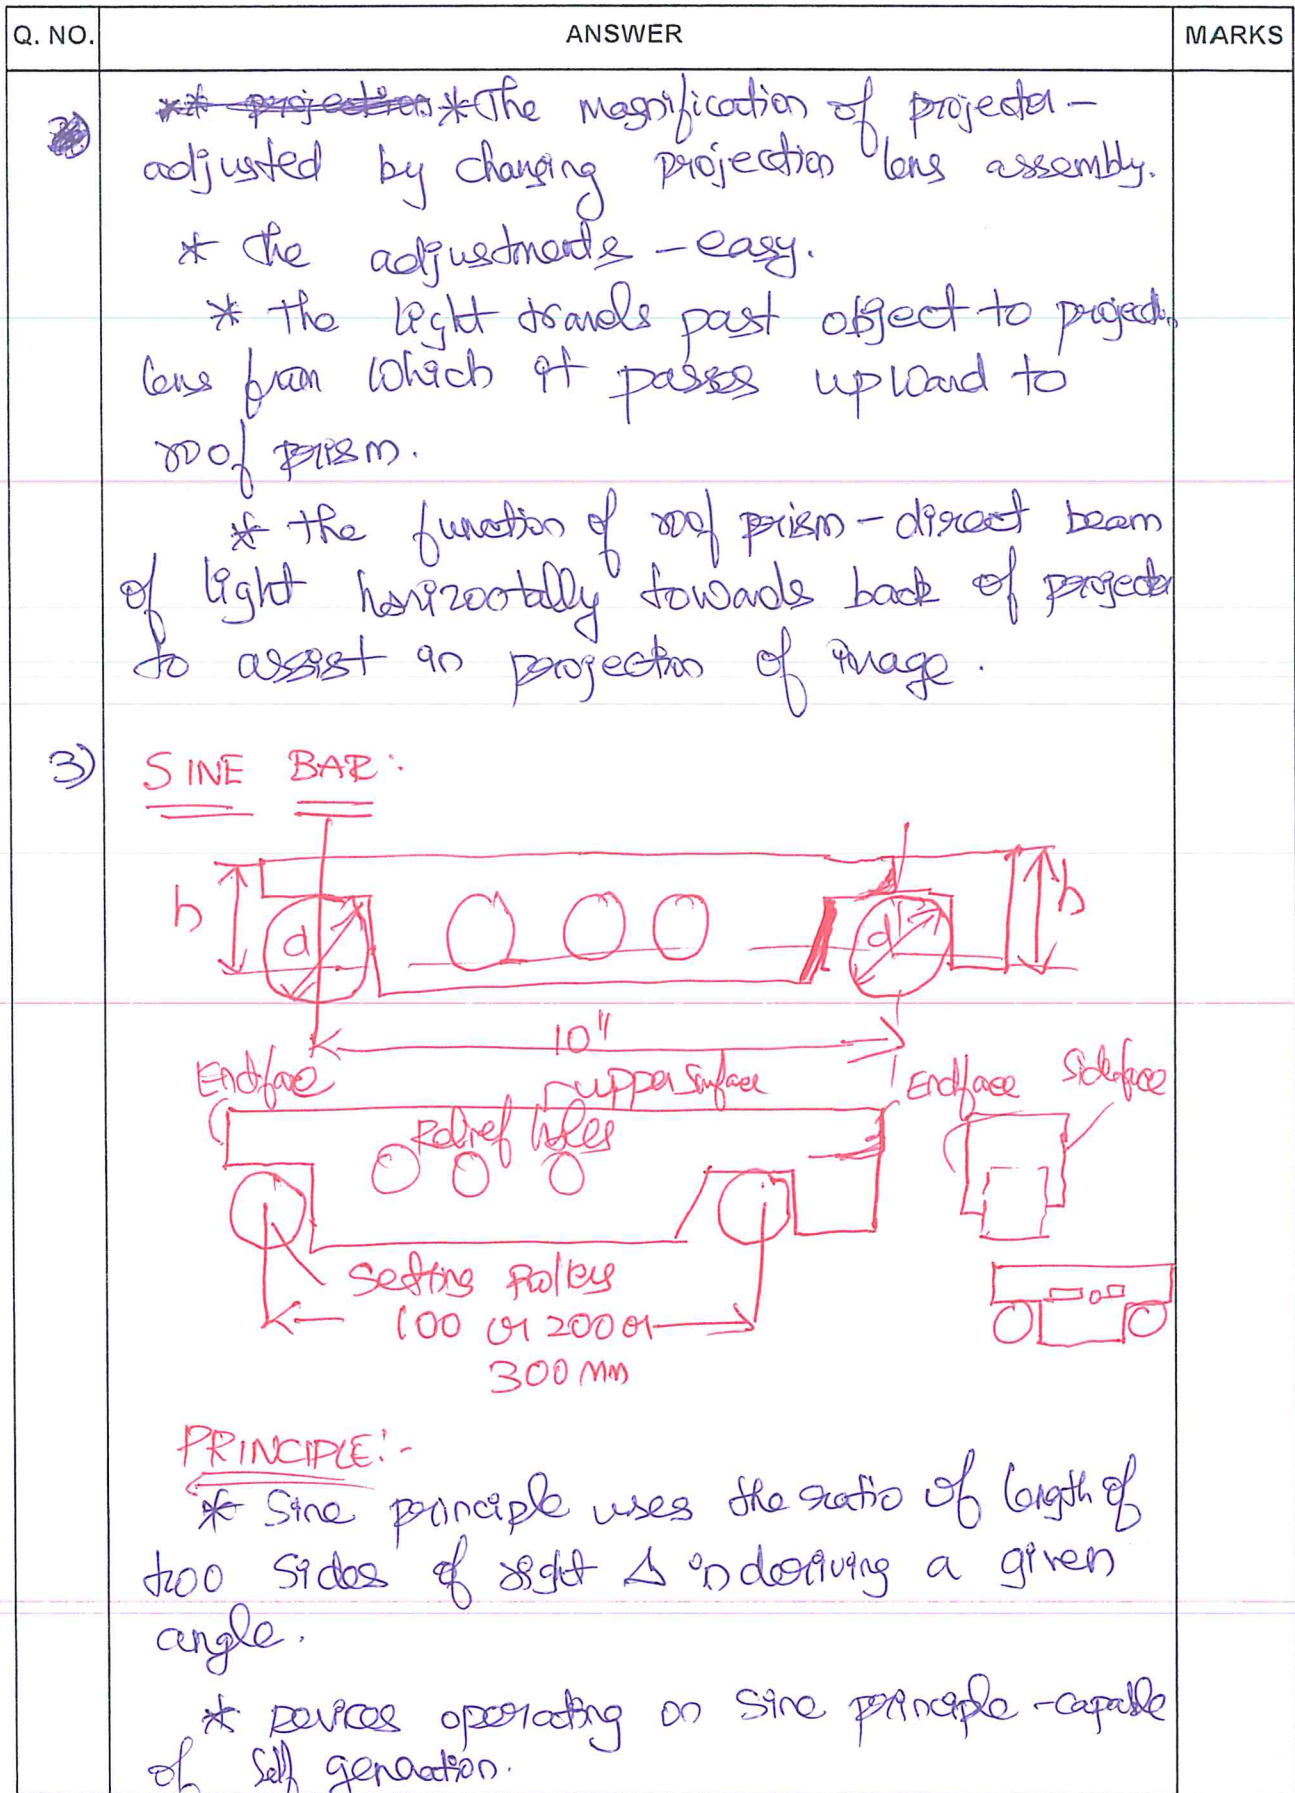 Q. NO. ANSWER MARKS
* The Magnification of projector -
adjusted by changing projection lens assembly.
* The adjustments - easy.
* The light travels past object to project.
lens from which it passes upward to
roof prism.
* The function of roof prism - direct beam
of light horizontally towards back of projector
to assist in projection of image.
3) SINE BAR:
h d d h
10"
Endface upper surface Endface Sideface
Relief holes
Setting Rollers
100 or 200 or
300 mm
PRINCIPLE:-
* Sine principle uses the ratio of length of
two sides of right Δ in deriving a given
angle.
* Devices operating on Sine principle - capable
of self generation.